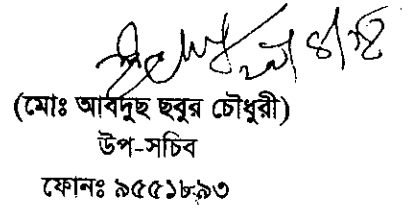 (মোঃ আবদুছ ছবুর চৌধুরী)
উপ-সচিব
ফোনঃ ৯৫৫১৮৯৩